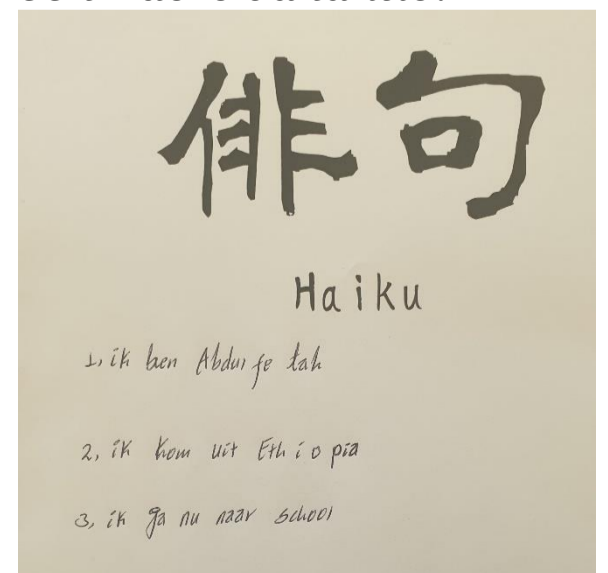 俳句
Haiku
1, ik ben Abdurfetah
2, ik kom uit Ethiopia
3, ik ga nu naar school